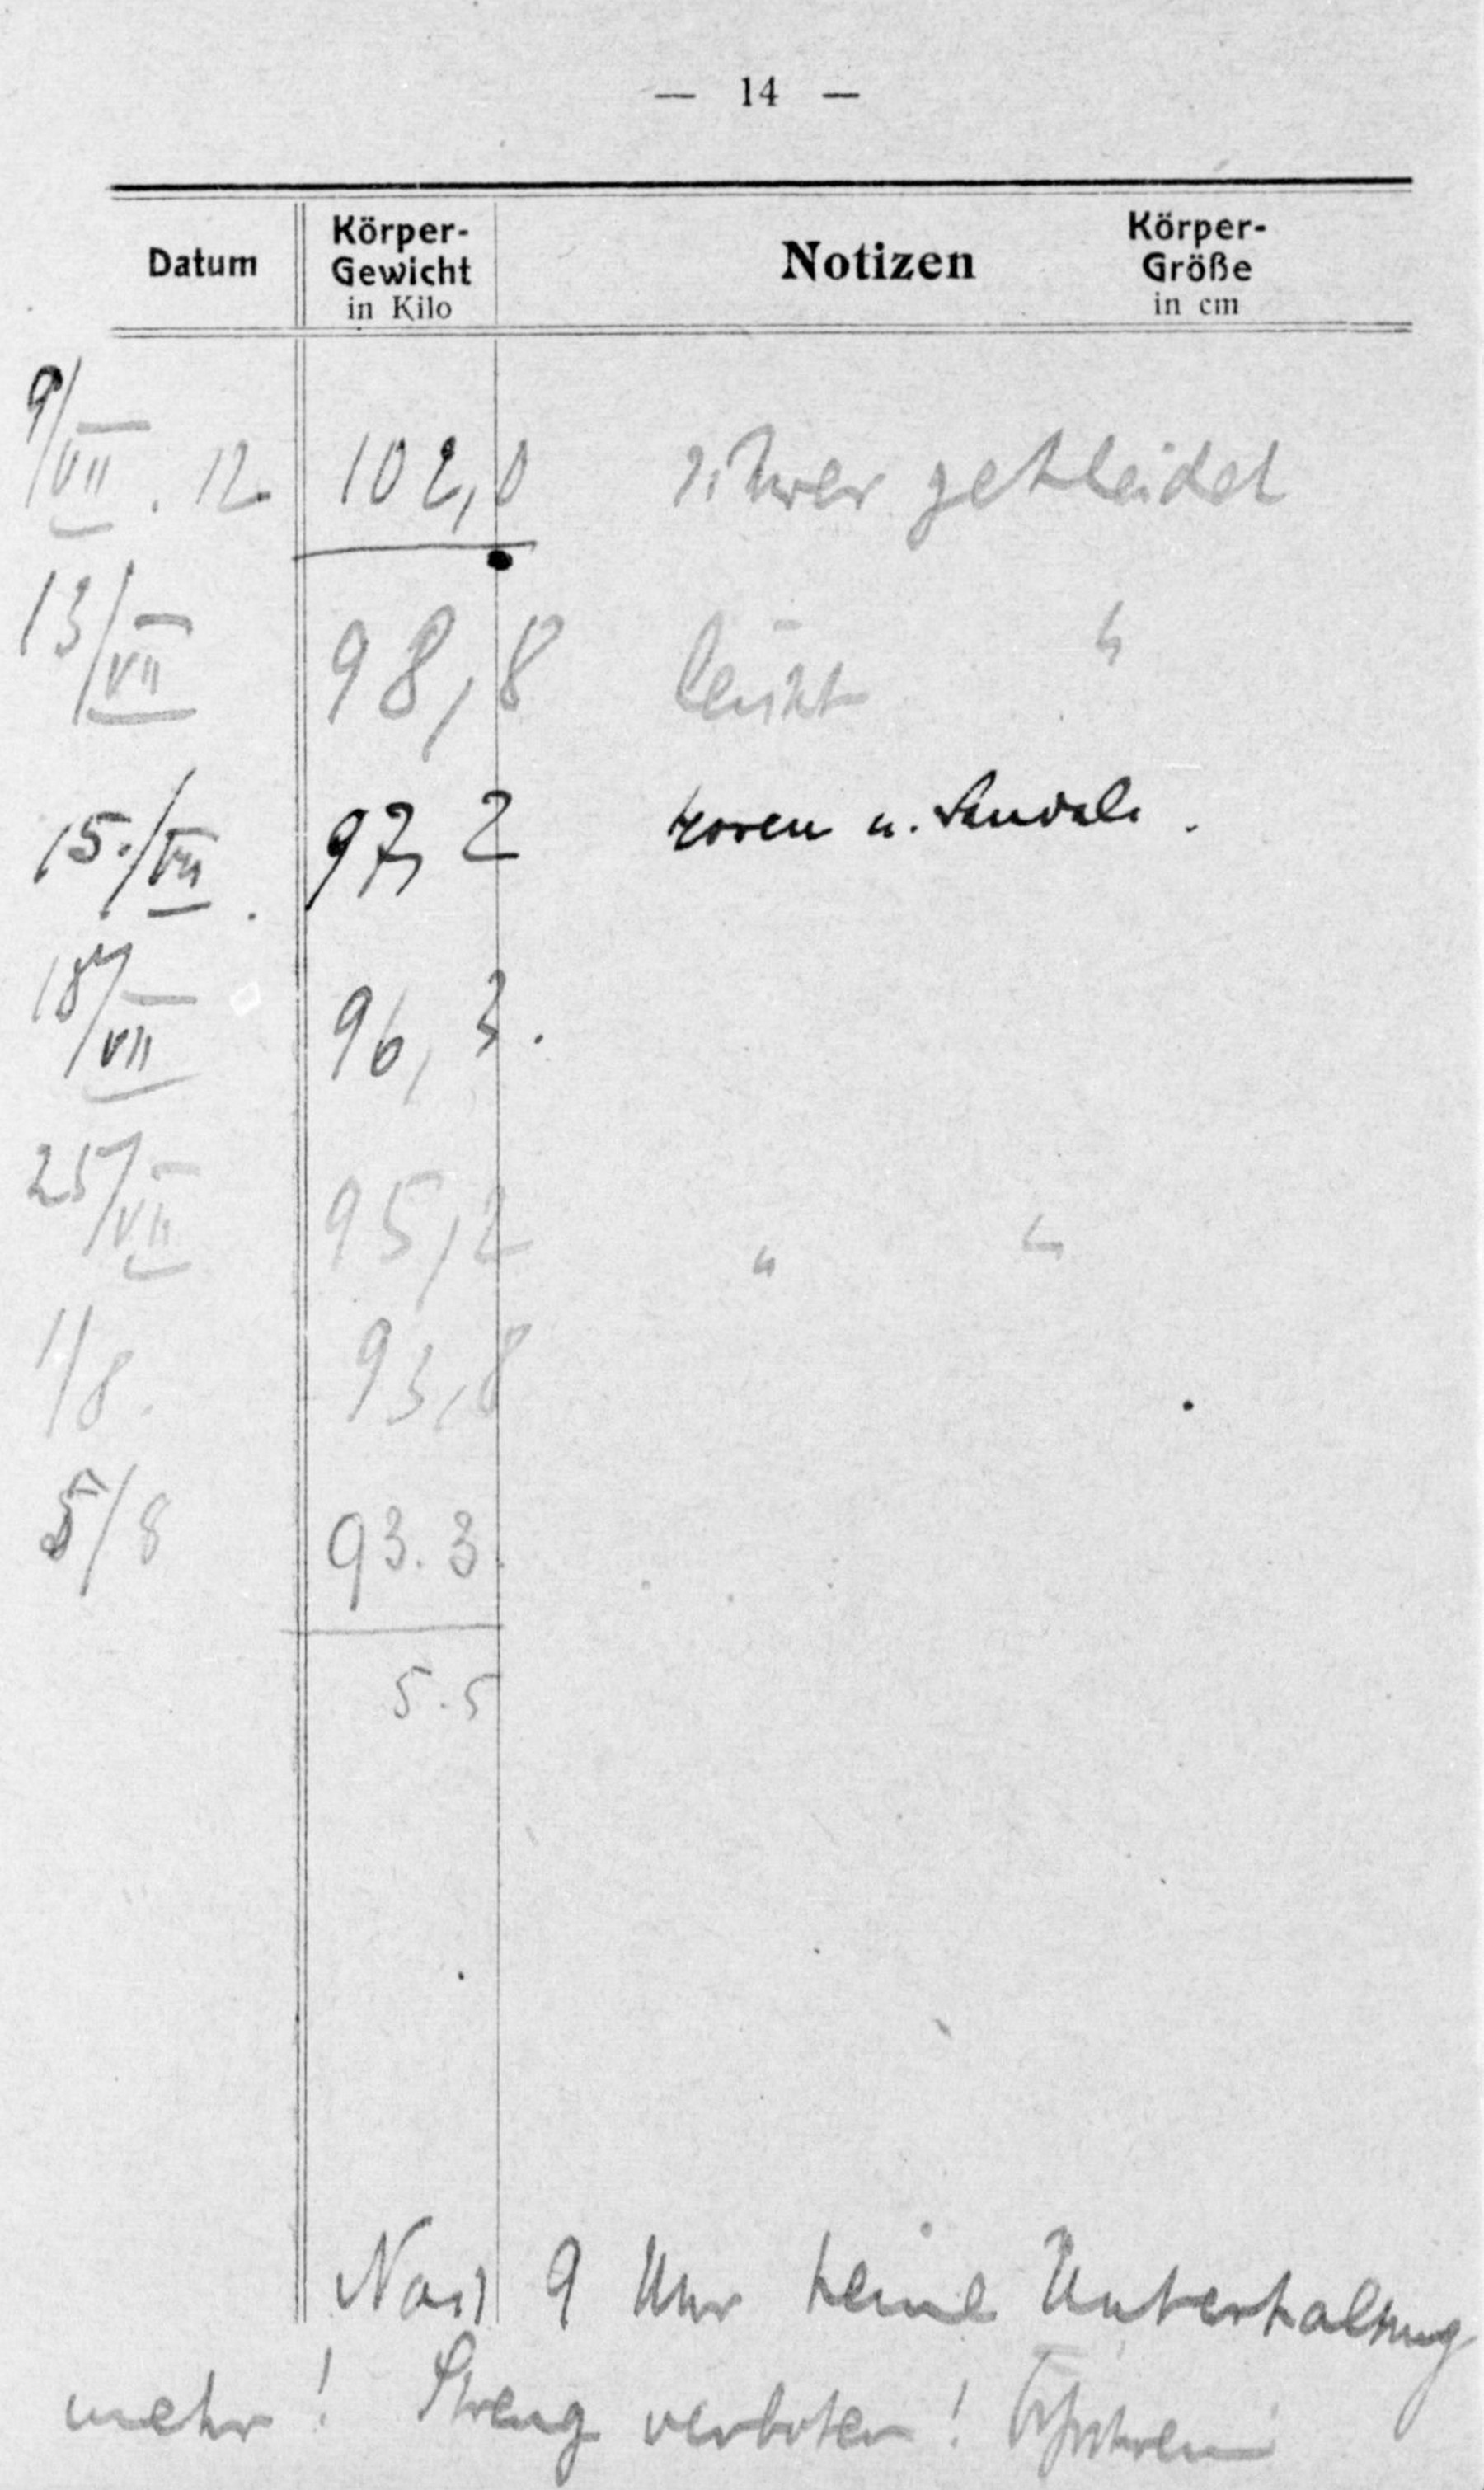 — 14 —
Datum Körper-Gewicht in Kilo Notizen Körper-Größe in cm
9/VII. 12. 102,0 schwer gekleidet
13/VII 98,8 leicht "
15./VII. 97,2 Hosen u. Sandale.
18/VII 96,3.
25/VII 95,2 " "
1/8. 93,8
5/8 93.3.
5.5
Nach 9 Uhr keine Unterhaltung
mehr! Streng verboten!